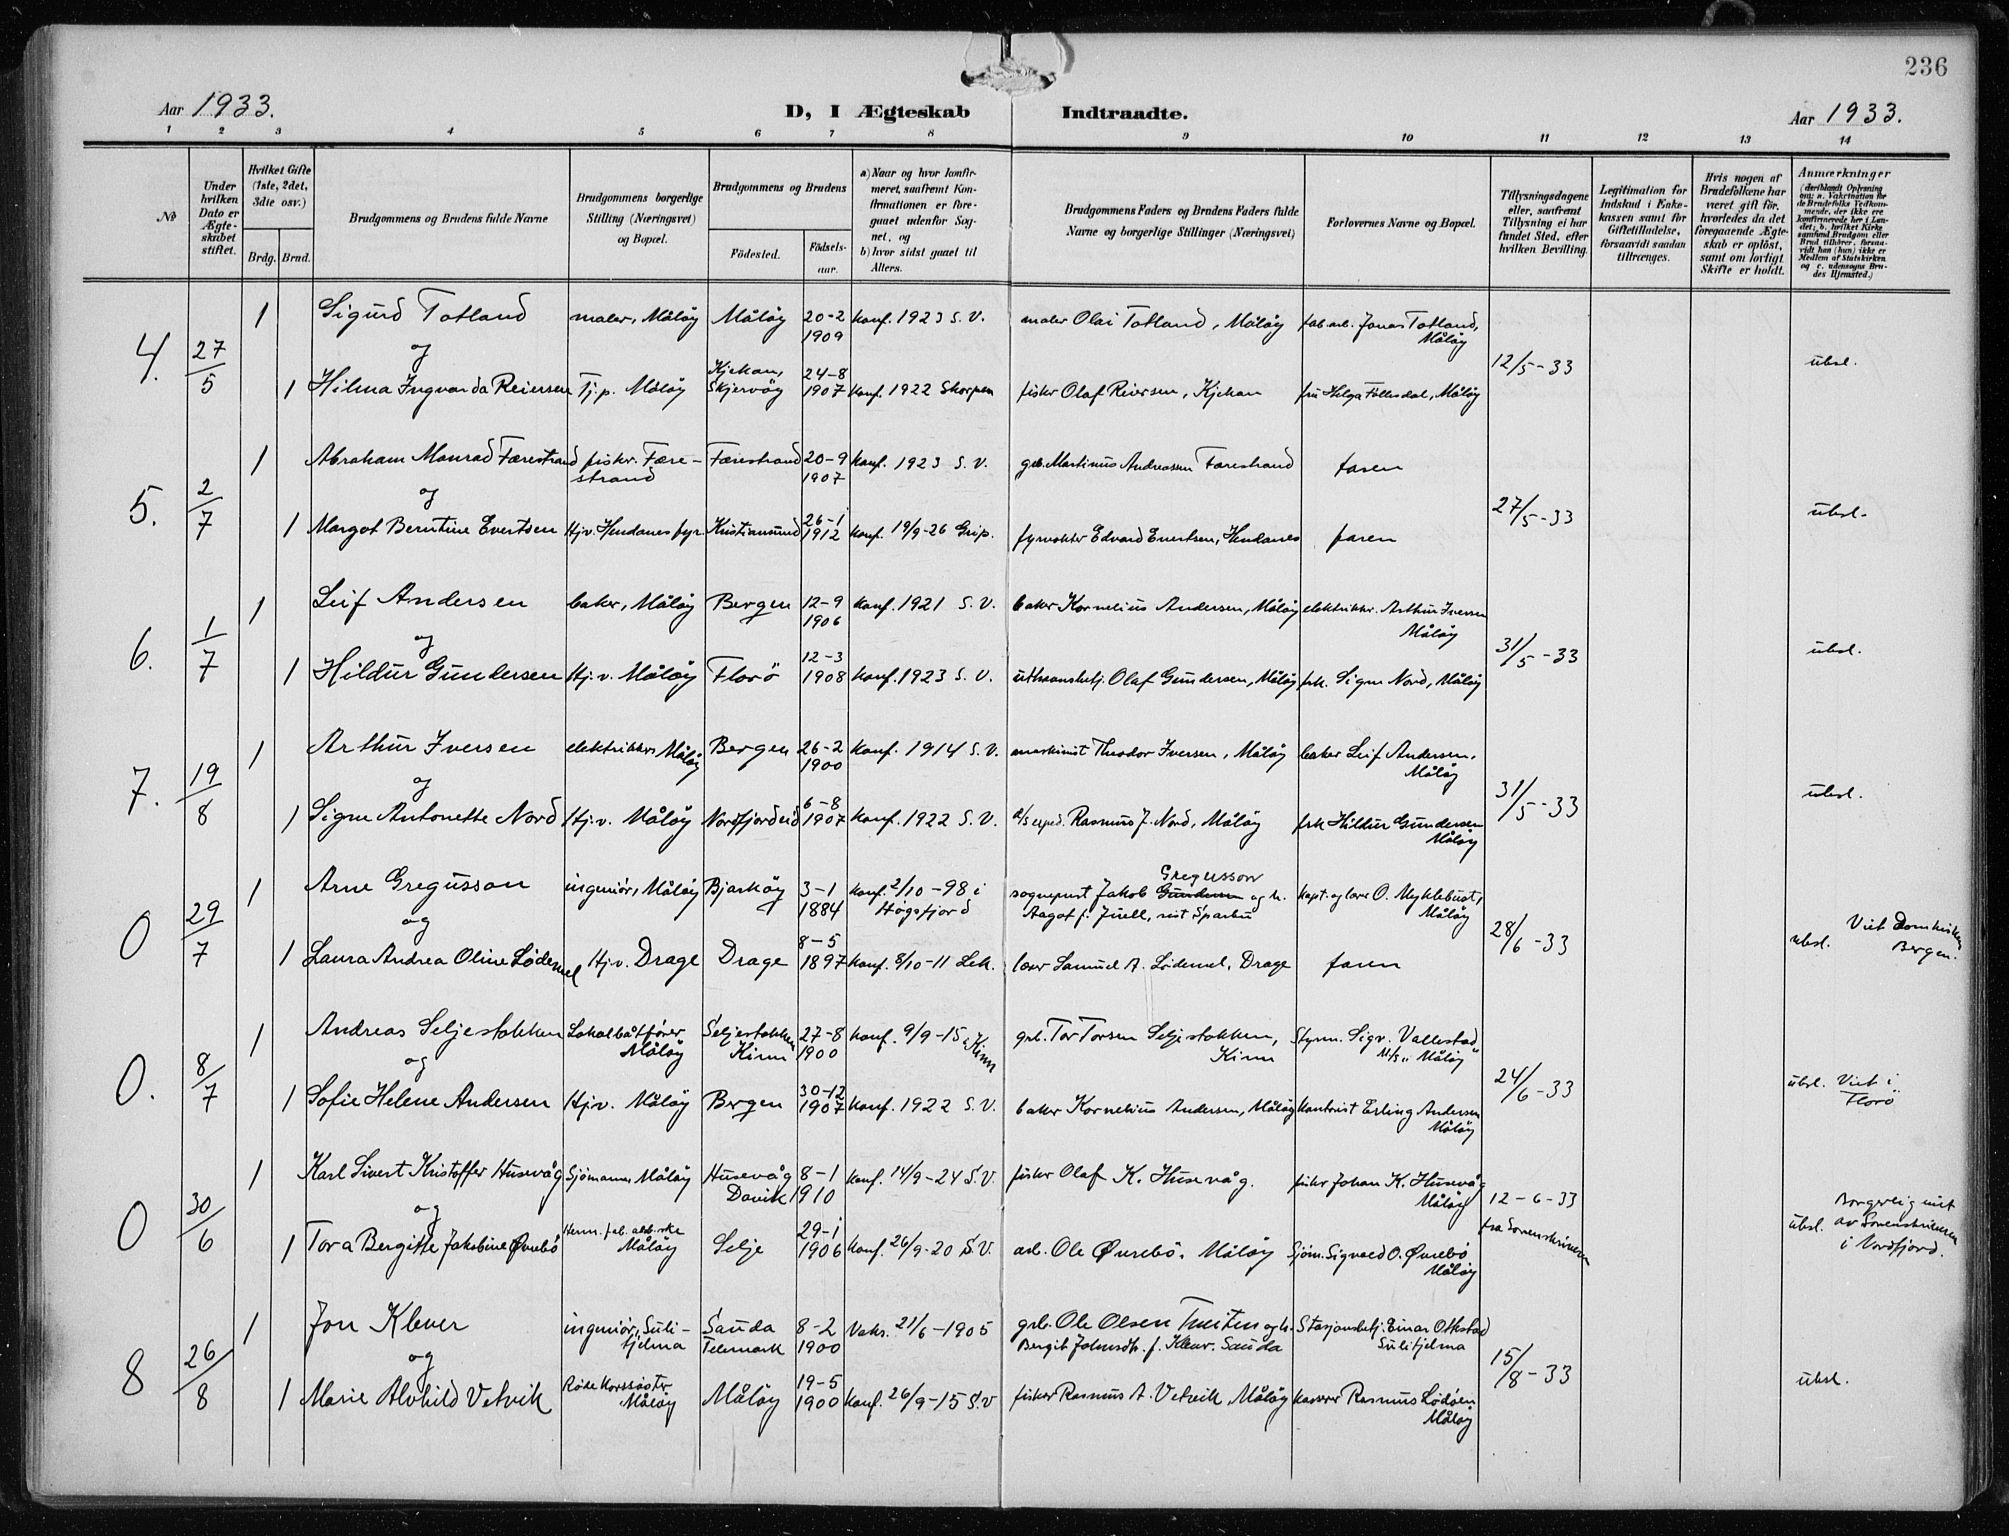 236
Aar 1933.
D, I Ægteskab Indtraadte.
Aar 1933.
1 2 3 4 5 6 7 8 9 10 11 12 13 14
No
Under hvilken Dato er Ægteskabet stiftet.
Hvilket Gifte (1ste, 2det, 3die osv.)
Brdg. Brud.
Brudgommens og Brudens fulde Navne
Brudgommens borgerlige Stilling (Næringsvei) og Bopæl.
Brudgommens og Brudens
Fødested. Fødselsaar.
a) Naar og hvor konfirmeret, saafremt Konfirmationen er foregaaet udenfor Sognet, og
b) hvor sidst gaaet til Alters.
Brudgommens Faders og Brudens Faders fulde Navne og borgerlige Stillinger (Næringsvei)
Forlovernes Navne og Bopæl.
Tillysningsdagene eller, saafremt Tillysning ei har fundet Sted, efter hvilken Bevilling.
Legitimation for Indskud i Enkekassen samt for Giftetilladelse, forsaavidt saadan tiltrænges.
Hvis nogen af Brudefolkene har været gift før, hvorledes da det foregaaende Ægteskab er opløst, samt om lovligt Skifte er holdt.
Anmærkninger
4. 27/5
1 Sigurd Totland maler, Måløy Måløy 20-2 1909 konf. 1923 S.V. maler Olai Totland, Måløy fab.arb. Jonas Totland, Måløy
og
12/5-33 ubsl.
1 Hilma Ingvarda Reiersen Tj.p. Måløy Kjekan, Skjervøy 24-8 1907 konf. 1922 Skorpen fisker Olaf Reiersen, Kjekan fru Helga Føllesdal, Måløy
5. 2/7
1 Abraham Monrad Færestrand fisker. Færestrand Færestrand 20-9 1907 konf. 1923 S.V. grb. Martinus Andreassen Færestrand faren
og
27/5-33 ubsl.
1 Margot Berntine Evertsen Hj.v. Hendanes fyr. Kristiansund 26-1 1912 konf. 19/9-26 Grip. fyrvokter Edvard Evertsen, Hendanes faren
6. 1/7
1 Leif Andersen baker, Måløy Bergen 12-9 1906 konf. 1921 S.V. baker Kornelius Andersen, Måløy elektriker. Arthur Iversen Måløy
og
31/5-33 ubsl.
1 Hildur Gundersen Hj.v. Måløy Florö 12-3 1908 konf. 1923 S.V. Olaf Gundersen, Måløy frk. Signe Nord, Måløy
7. 19/8
1 Arthur Iversen elektriker, Måløy Bergen 26-2 1900 konf. 1914 S.V. maskinist Theodor Iversen, Måløy baker Leif Andersen, Måløy
og
31/5-33 ubsl.
1 Signe Antonette Nord Hj.v. Måløy Nordfjordeid 6-8 1907 konf. 1922 S.V. d/s exped. Rasmus J. Nord, Måløy frk Hildur Gundersen Måløy
0 29/7
1 Arne Gregusson ingeniør, Måløy Bjarkøy 3-1 1884 konf. 2/10-98 i Høgsfjord sogneprest Jakob Gregusson og h. Aagot f. Juell, Sparbu kapt. og lærer O. Myklebust, Måløy
og
28/6-33 ubsl. Viet Domkirken Bergen.
1 Laura Andrea Oline Lødemel Hj.v. Drage Drage 8-5 1897 konf. 8/10-11 Lek. lærer Samuel A. Lødemel, Drage faren
0. 8/7
1 Andreas Seljestokken Lokalbåtfører Måløy Seljestokken Kinn 27-8 1900 konf. 9/9-15 i Kinn grb. Tor Torsen Seljestokken, Kinn Styrm. Sigv. Vallestad M/s "Måløy"
og
24/6-33 ubsl. Viet i Florö
1 Sofie Helene Andersen Hj.v. Måløy Bergen 30-12 1907 konf. 1922 S.V. baker Kornelius Andersen, Måløy kontorist Erling Andersen Måløy
0 30/6
1 Karl Sivert Kristoffer Husevåg Sjømann Måløy Husevåg Davik 8-1 1910 konf. 14/9-24 S.V. fisker Olaf K. Husevåg. fisker Johan K. Husevåg Måløy
og
12-6-33 fra Sorenskriveren ubsl. Borgerlig viet av Sorenskriveren i Nordfjord.
1 Tora Bergitte Jakobine Øvrebö Herm. fab. arb.ske Måløy Selje 29-1 1906 konf. 26/9-20 S.V. arb. Ole Øvrebö. Måløy Sjøm. Sigvald O. Øvrebö Måløy
8 26/8
1 Jon Klever ingeniør, Sulitjelma Sauda Telemark 8-2 1900 Vaks. 21/6-1905 grb. Ole Olsen Tveiten og h. Bergit Johnsdtr. f. Klever. Sauda Stasjonsbetj. Einar Otkstad Sulitjelma
og
15/8-33 ubsl.
1 Marie Alvhild Vetvik Røde Korssøster Måløy Måløy 19-5 1900 konf. 26/9-15 S.V fisker Rasmus A. Vetvik, Måløy kasserer Rasmus Lødøen Måløy